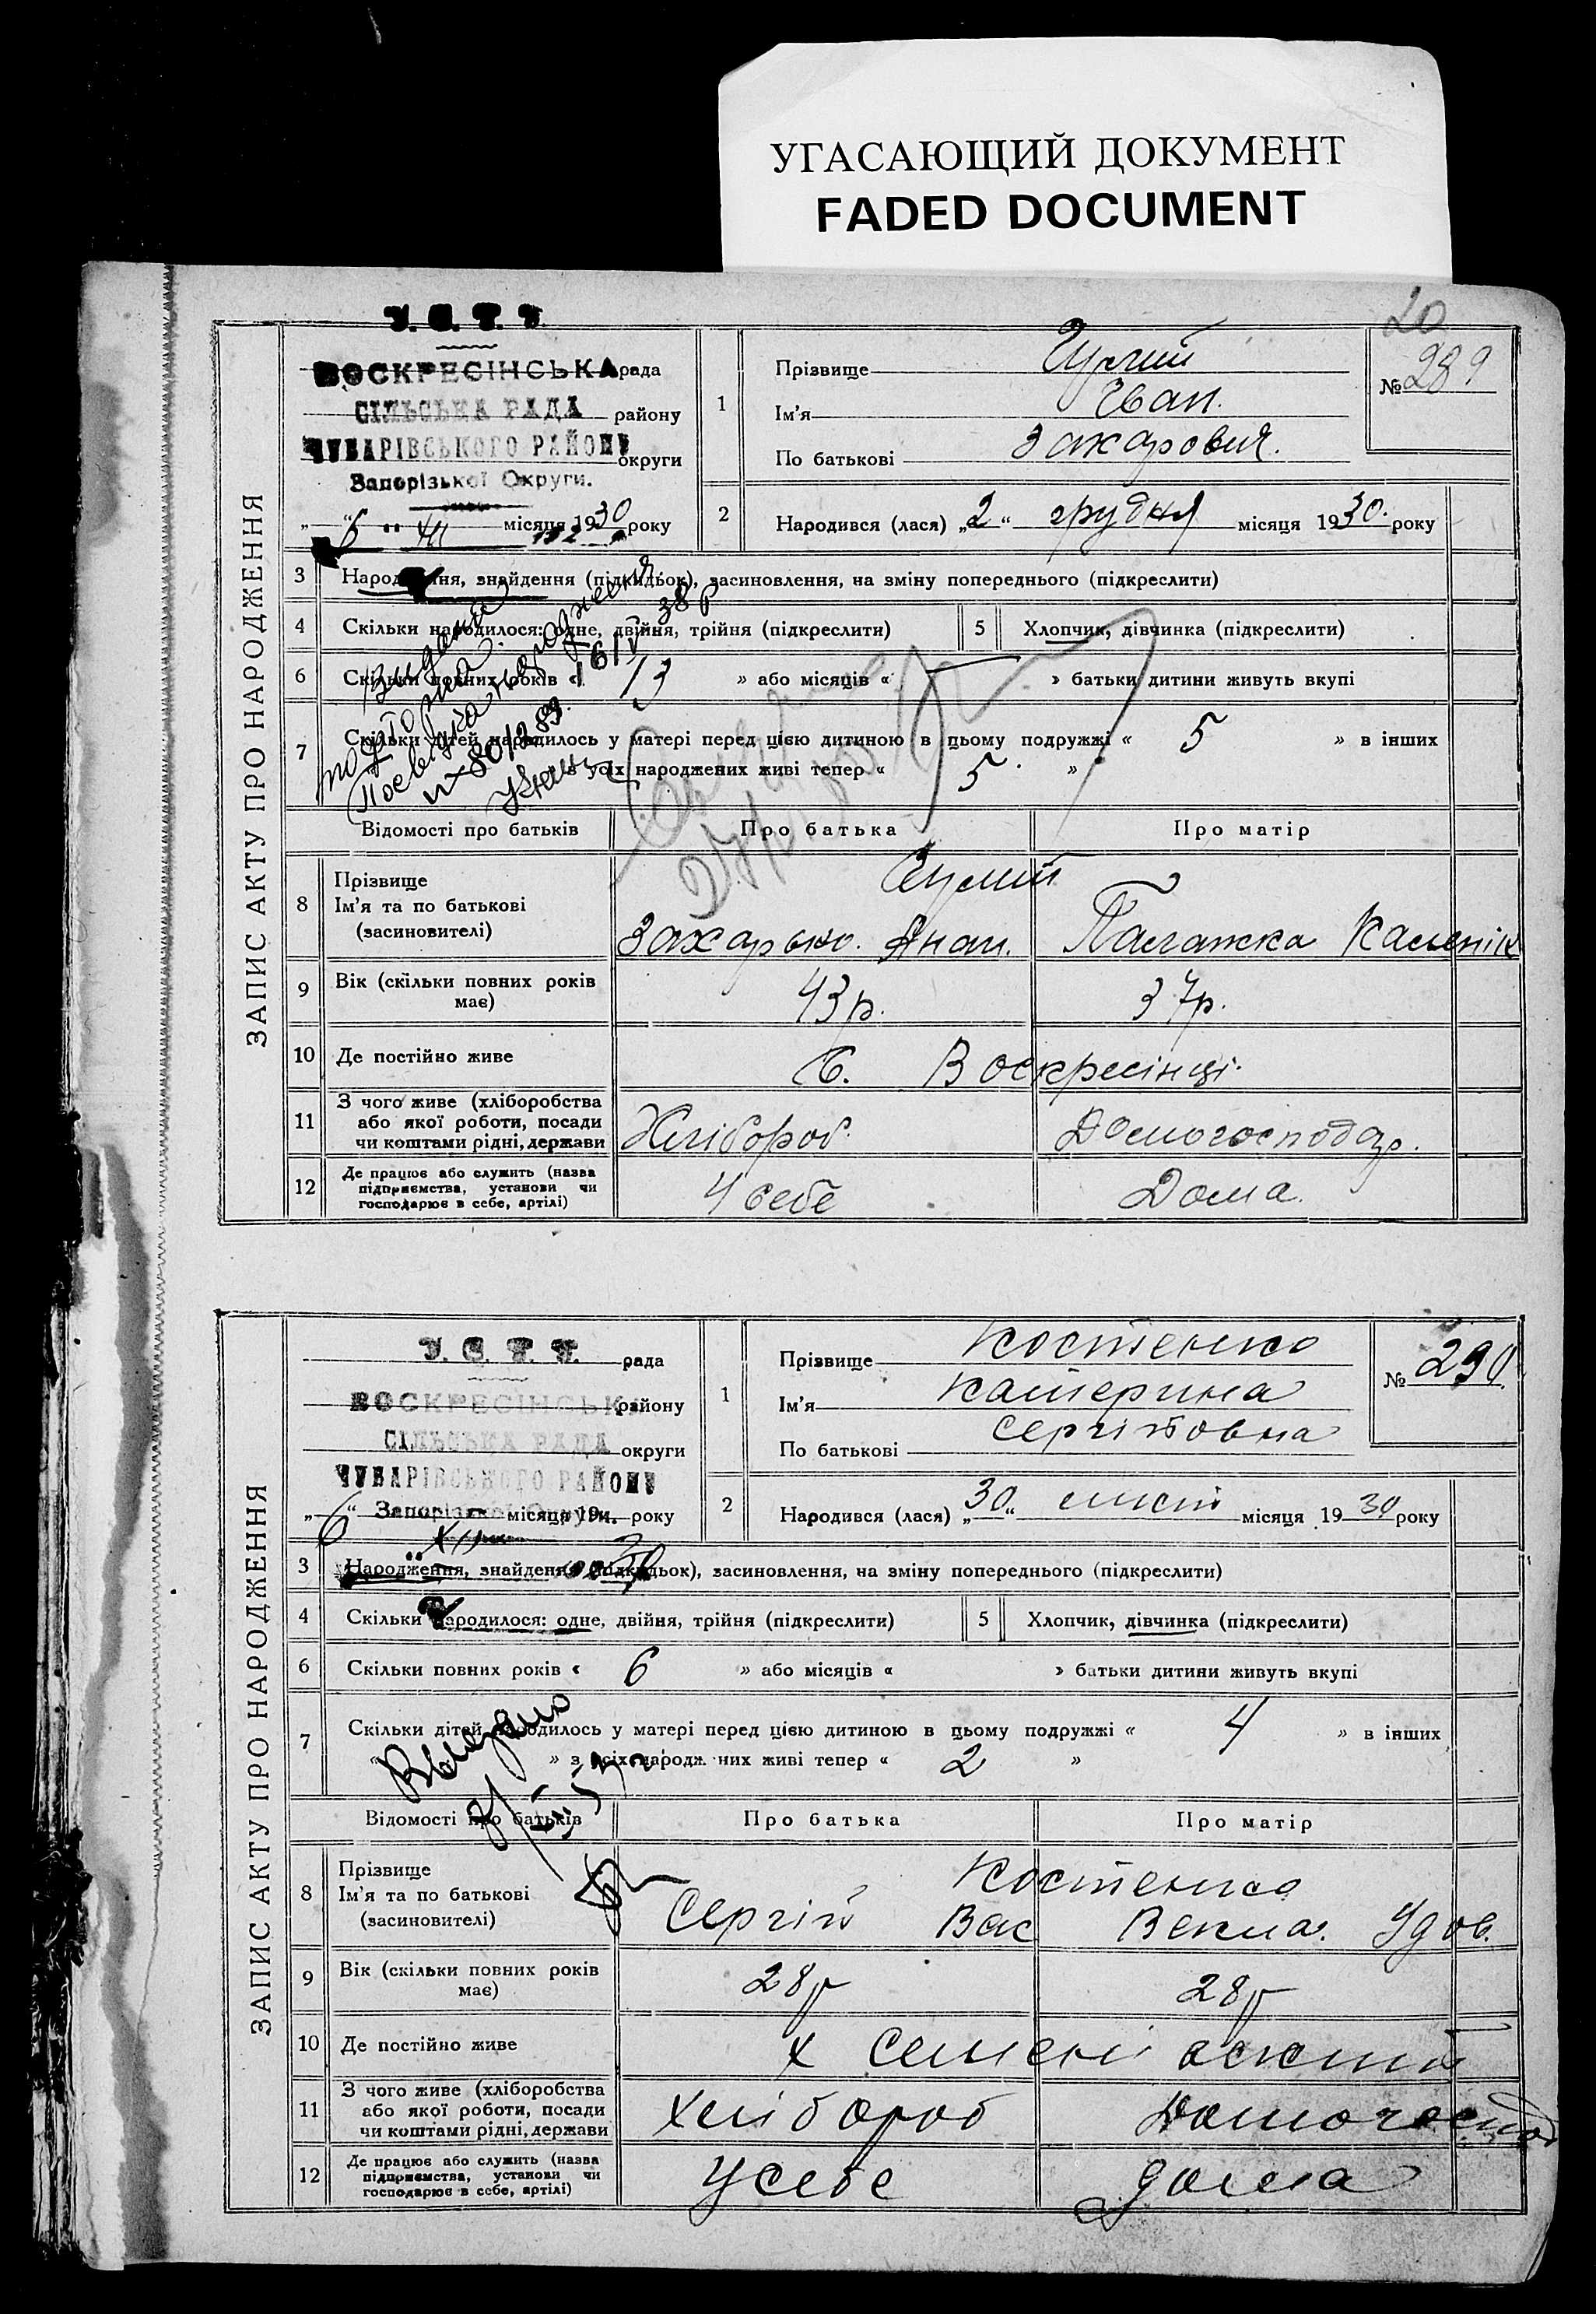 УГАСАЮЩИЙ ДОКУМЕНТ
FADED DOCUMENT
20
У. С. Р. Р.
ВОСКРЕСІНСЬКА рада
СІЛЬСЬКА РАДА району
ЧУБАРІВСЬКОГО РАЙОНУ округи
Запорізької Округи.
„6" XII місяця 1930 року
ЗАПИС АКТУ ПРО НАРОДЖЕННЯ
1 Прізвище
Ім'я Іван
По батькові Захарович.
№ 289
2 Народився (лася) „2" грудня місяця 1930. року
3 Народження, знайдення (підкидьок), засиновлення, на зміну попереднього (підкреслити)
4 Скільки народилося: одне, двійня, трійня (підкреслити)
5 Хлопчик, дівчинка (підкреслити)
6 Скільки повних років « 13 » або місяців « » батьки дитини живуть вкупі
7 Скільки дітей народилось у матері перед цією дитиною в цьому подружжі « 5 » в інших
з усіх народжених живі тепер « 5 »
Відомості про батьків Про батька Про матір
8 Прізвище
Ім'я та по батькові
(засновителі)
Захарько. Анан. Палажка
9 Вік (скільки повних років має) 43 р. 37 р.
10 Де постійно живе С. Воскресінці.
11 З чого живе (хліборобства
або якої роботи, посади
чи коштами рідні, держави
Хлібороб. Домогосподар.
12 Де працює або служить (назва
підприємства, установи чи
господарює в себе, артілі)
У себе Дома.
У. С. Р. Р. рада
ВОСКРЕСІНСЬКА району
СІЛЬСЬКА РАДА округи
ЧУБАРІВСЬКОГО РАЙОНУ
„6" Запорізької Округи. місяця 19 року
XII 30
ЗАПИС АКТУ ПРО НАРОДЖЕННЯ
1 Прізвище Костенко
Ім'я Катерина
По батькові Сергійовна
№ 290
2 Народився (лася) „30" лист місяця 1930 року
3 Народження, знайдення (підкидьок), засиновлення, на зміну попереднього (підкреслити)
4 Скільки народилося: одне, двійня, трійня (підкреслити)
5 Хлопчик, дівчинка (підкреслити)
6 Скільки повних років « 6 » або місяців « » батьки дитини живуть вкупі
7 Скільки дітей народилось у матері перед цією дитиною в цьому подружжі « 4 » в інших
« » з усіх народжених живі тепер « 2 »
Відомості про батьків Про батька Про матір
8 Прізвище
Ім'я та по батькові
(засиновителі)
Костенко
Сергій Вас Векла.
9 Вік (скільки повних років має) 28 р 28 р
10 Де постійно живе х
11 З чого живе (хліборобства
або якої роботи, посади
чи коштами рідні, держави
хлібороб Домогоспод
12 Де працює або служить (назва
підприємства, установи чи
господарює в себе, артілі)
У себе дома